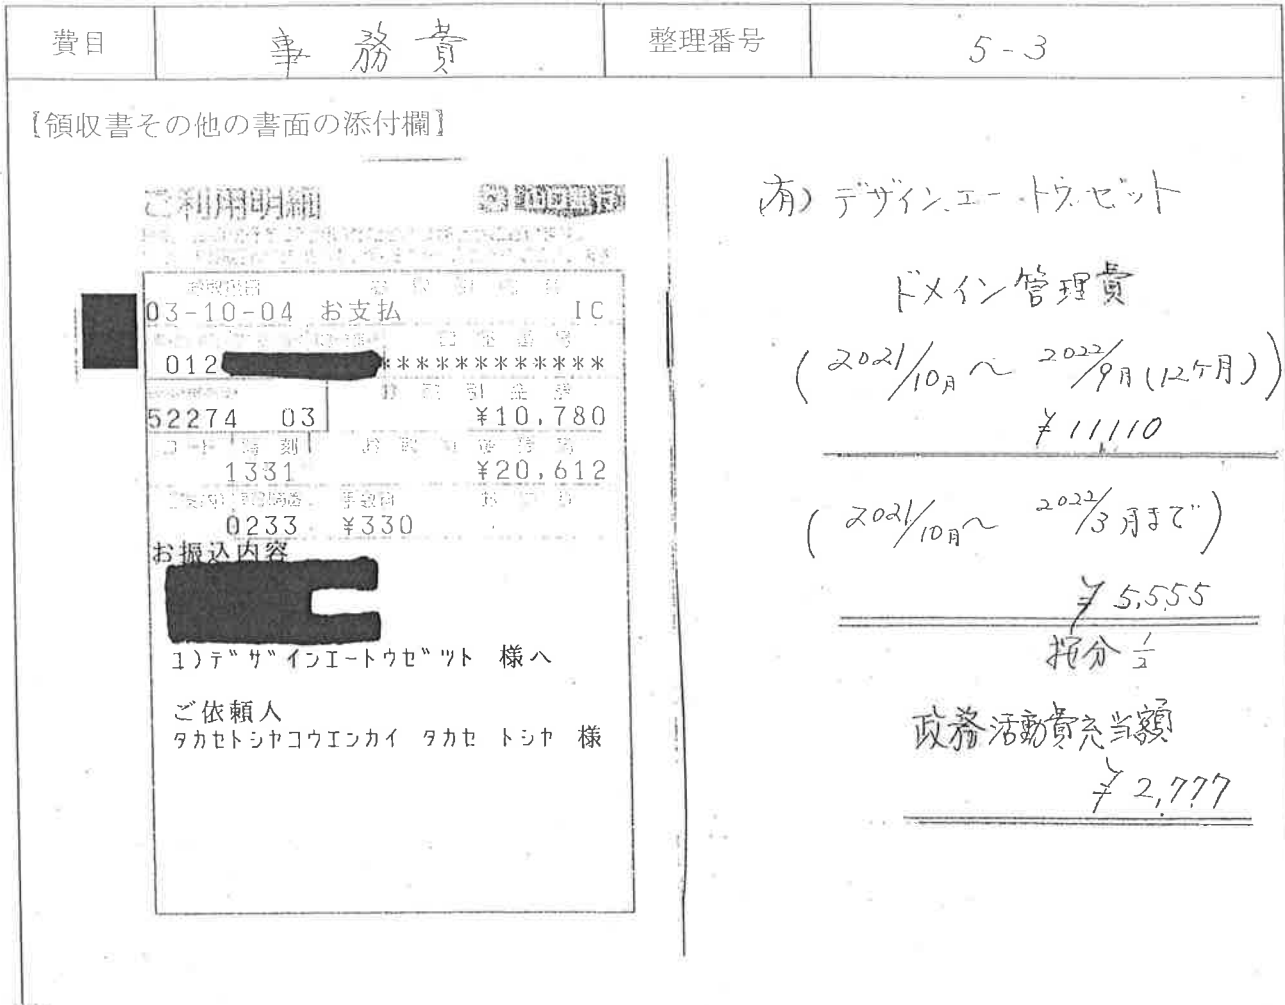 費目 事務費 整理番号 5-3
【領収書その他の書面の添付欄】
ご利用明細
03-10-04 お支払 IC
012 ***********
52274 03 ¥10,780
1331 ¥20,612
0233 ¥330
お振込内容
ユ)デザインエートウゼツト 様へ
ご依頼人
タカセトシヤコウエンカイ タカセ トシヤ 様
有) デザインエートゥゼット
ドメイン管理費
(2021/10月〜2022/9月(12ケ月))
¥11110
(2021/10月〜2022/3月まで)
¥5,555
按分 1/2
政務活動費充当額
¥2,777